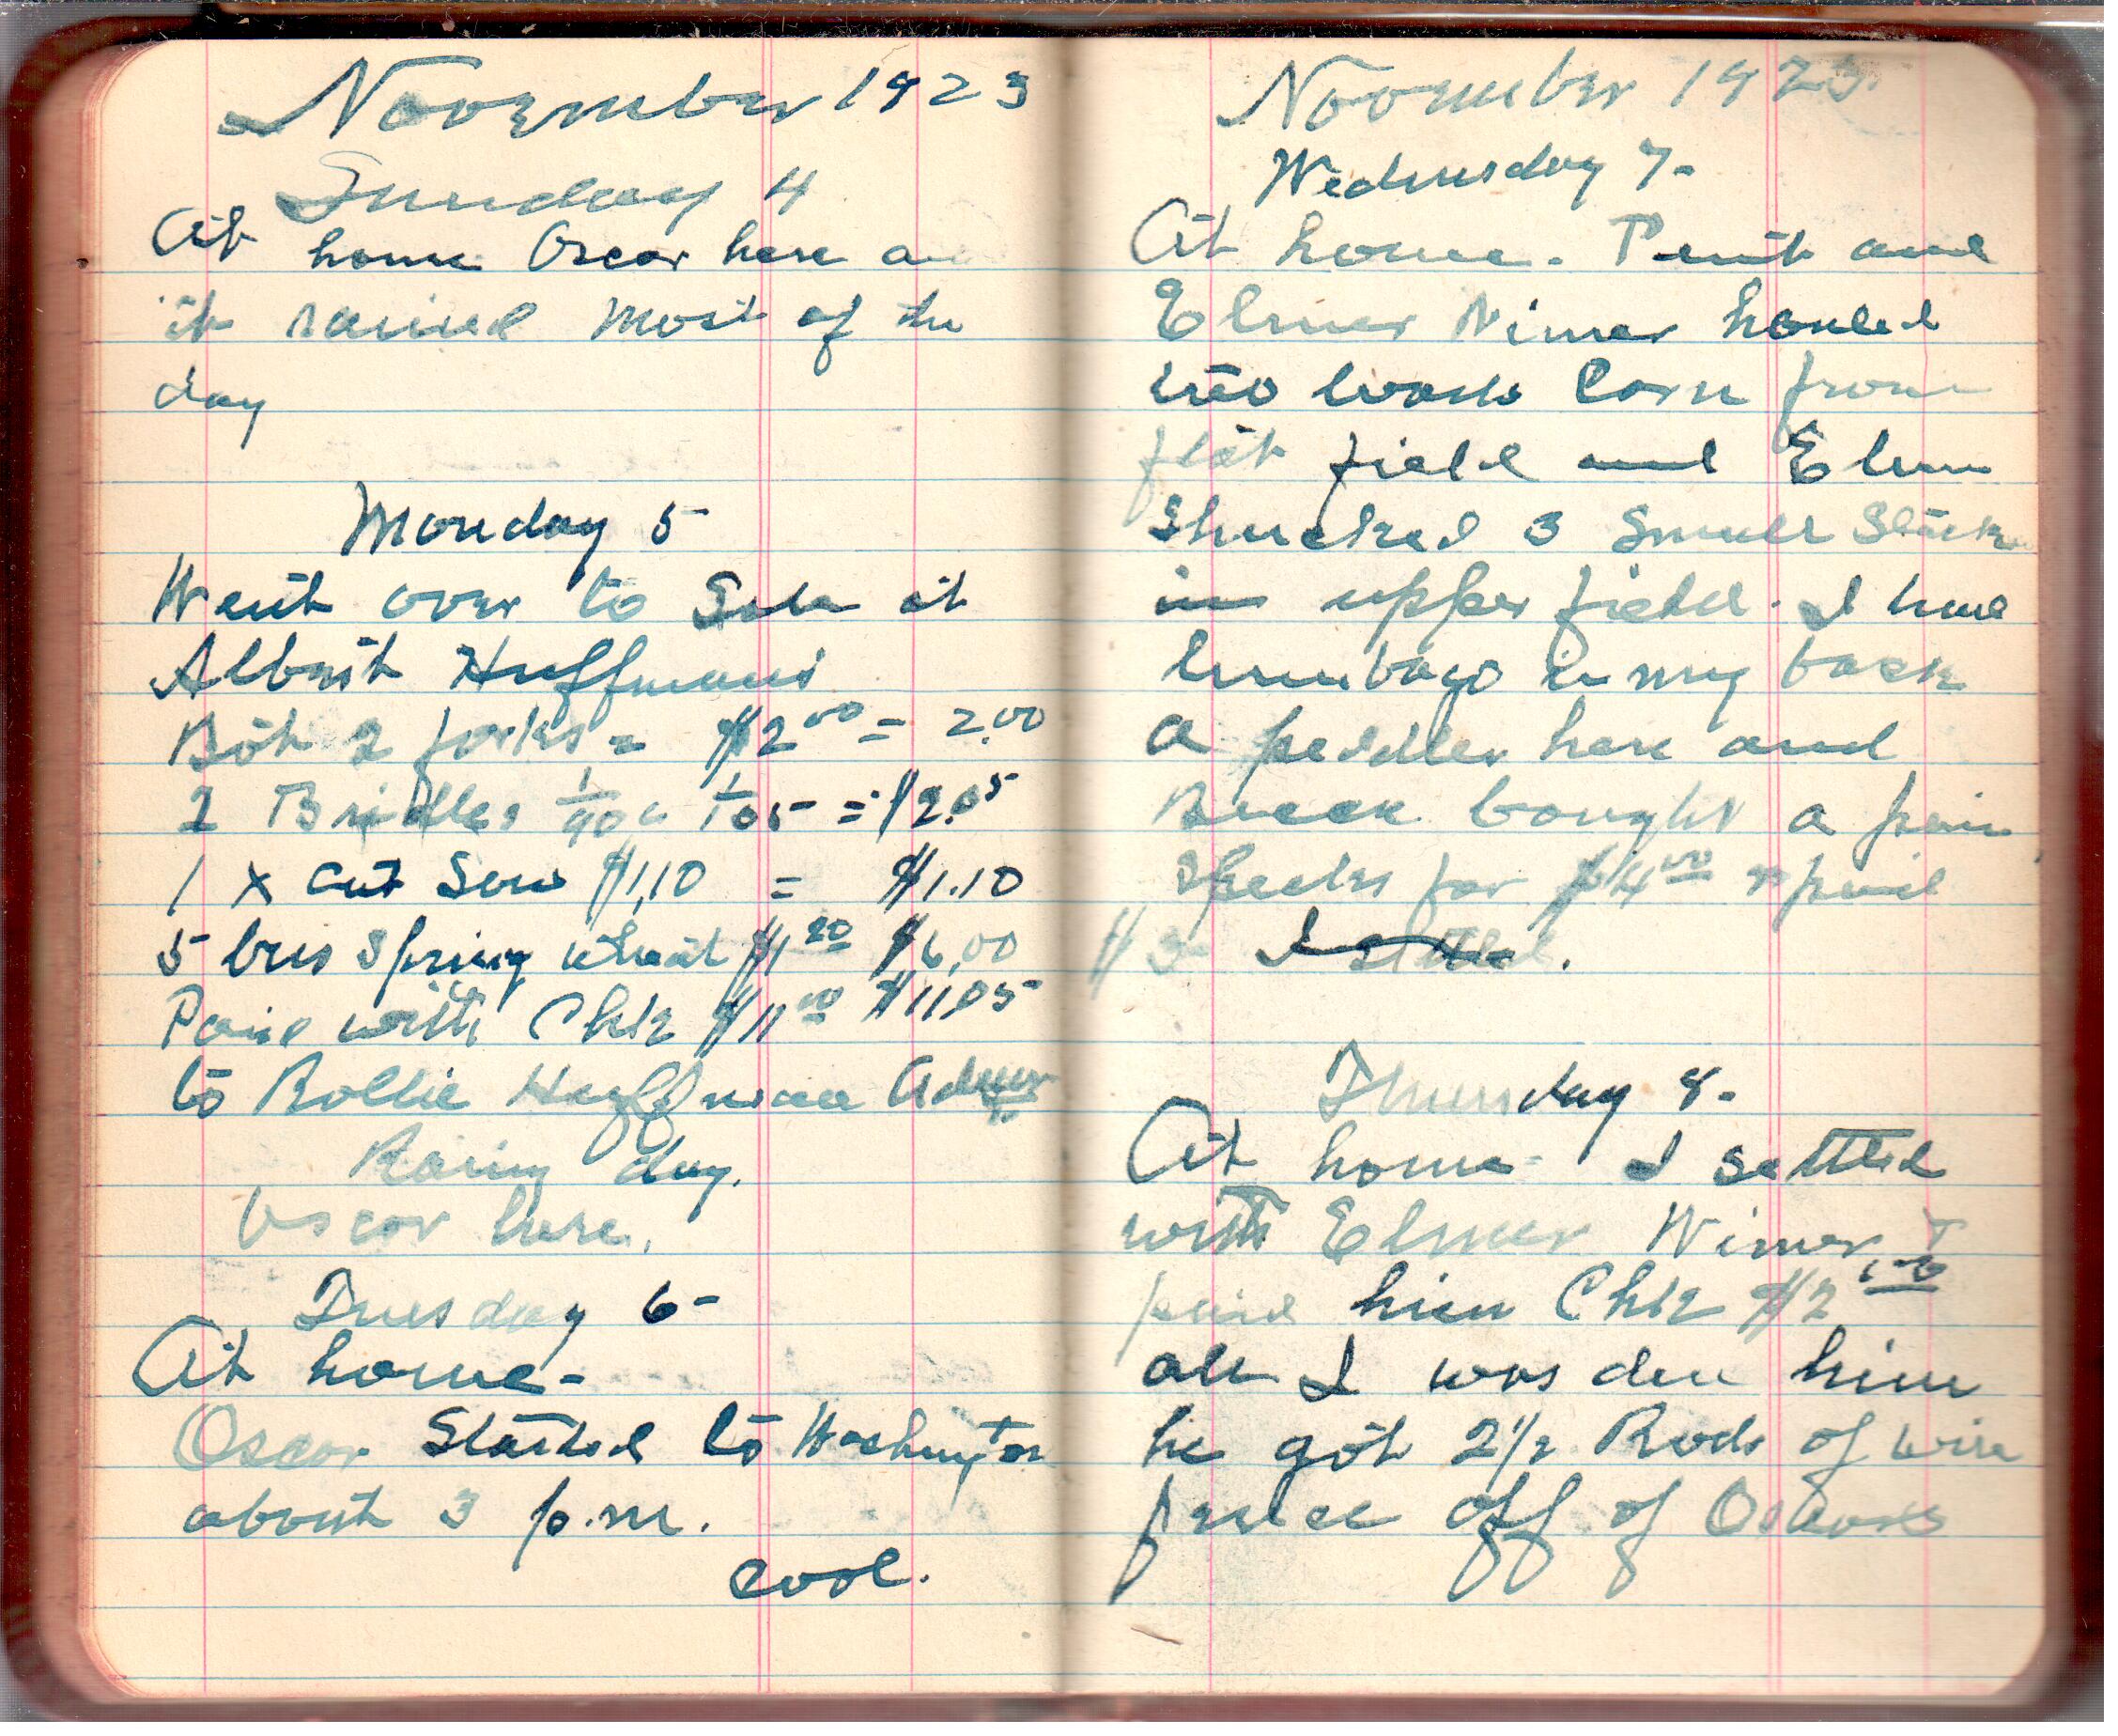 November 1923
Sunday 4
At home Oscar here
it rained most of the
day
Monday 5
Went over to Sale at
Albert Huffmans
Bot 2 forks = $2.00 = 2.00
2 Bridles 1/90c 1/1.05 = $2.05
1 X cut Saw $1.10 = $1.10
5 bus Spring wheat $1.20 $6.00
Paid with Chk $11.00 $11.05
to Rollie Huffman Admr
Rainy day.
Oscar here.
Tuesday 6-
At home-
Oscar Started to Washington
about 3 p.m.
cool.
November 1923.
Wednesday 7-
At home. Pent and
Elmer Nimer hauled
two loads Corn from
flat field and Elmer
Shucked 3 Small Stacks
in upper field. I have
lumbago in my back
a peddler here and
bought a pair
Specks for $4.00 paid
$3- I settled.
Thursday 8-
At home- I settled
with Elmer Wimer &
paid him Chk $2
all I was due him
he got 2 1/2 Rods of wire
fence off of Oscars